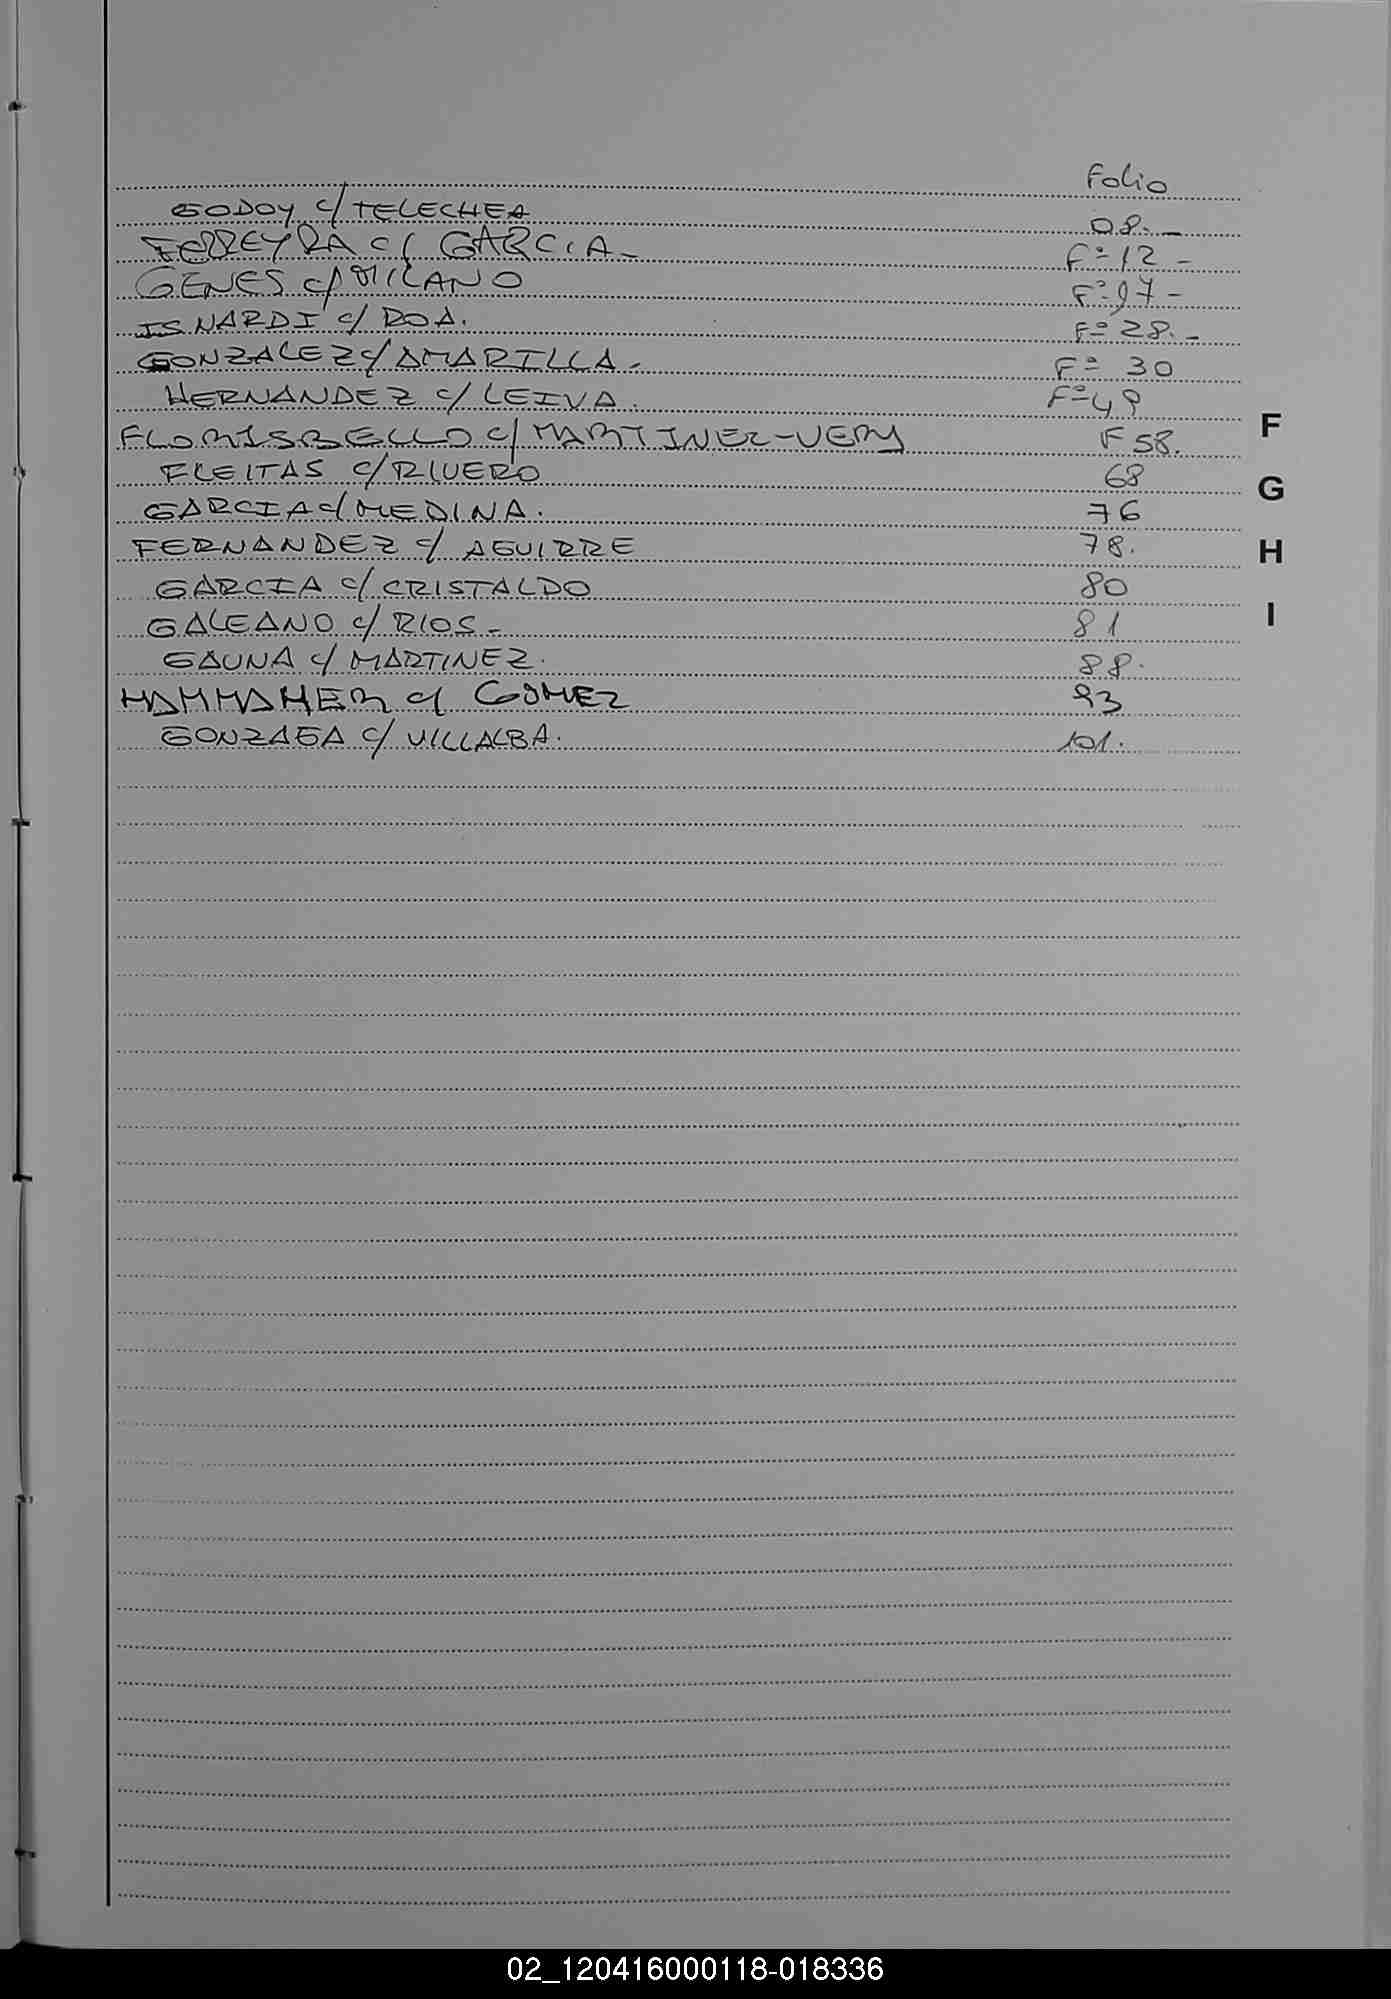 Folio
GODOY c/ TELECHEA 08.-
FERREYRA c/ GARCIA- Fº12-
GENES c/ MILANO Fº 97-
ISNARDI c/ ROA. Fº 28.-
GONZALEZ c/ AMARILLA- Fº 30
HERNANDEZ c/ LEIVA. Fº 49
FLORISBELLO c/ MARTINEZ-VERY F 58.
FLEITAS c/ RIVERO 68
GARCIA c/ MEDINA. 76
FERNANDEZ c/ AGUIRRE 78.
GARCIA c/ CRISTALDO 80
GALEANO c/ RIOS- 81
GAUNA c/ MARTINEZ. 88.
HAMMAHER c/ GOMEZ 93
GONZAGA c/ VILLALBA. 101.
F
G
H
I
02_120416000118-018336